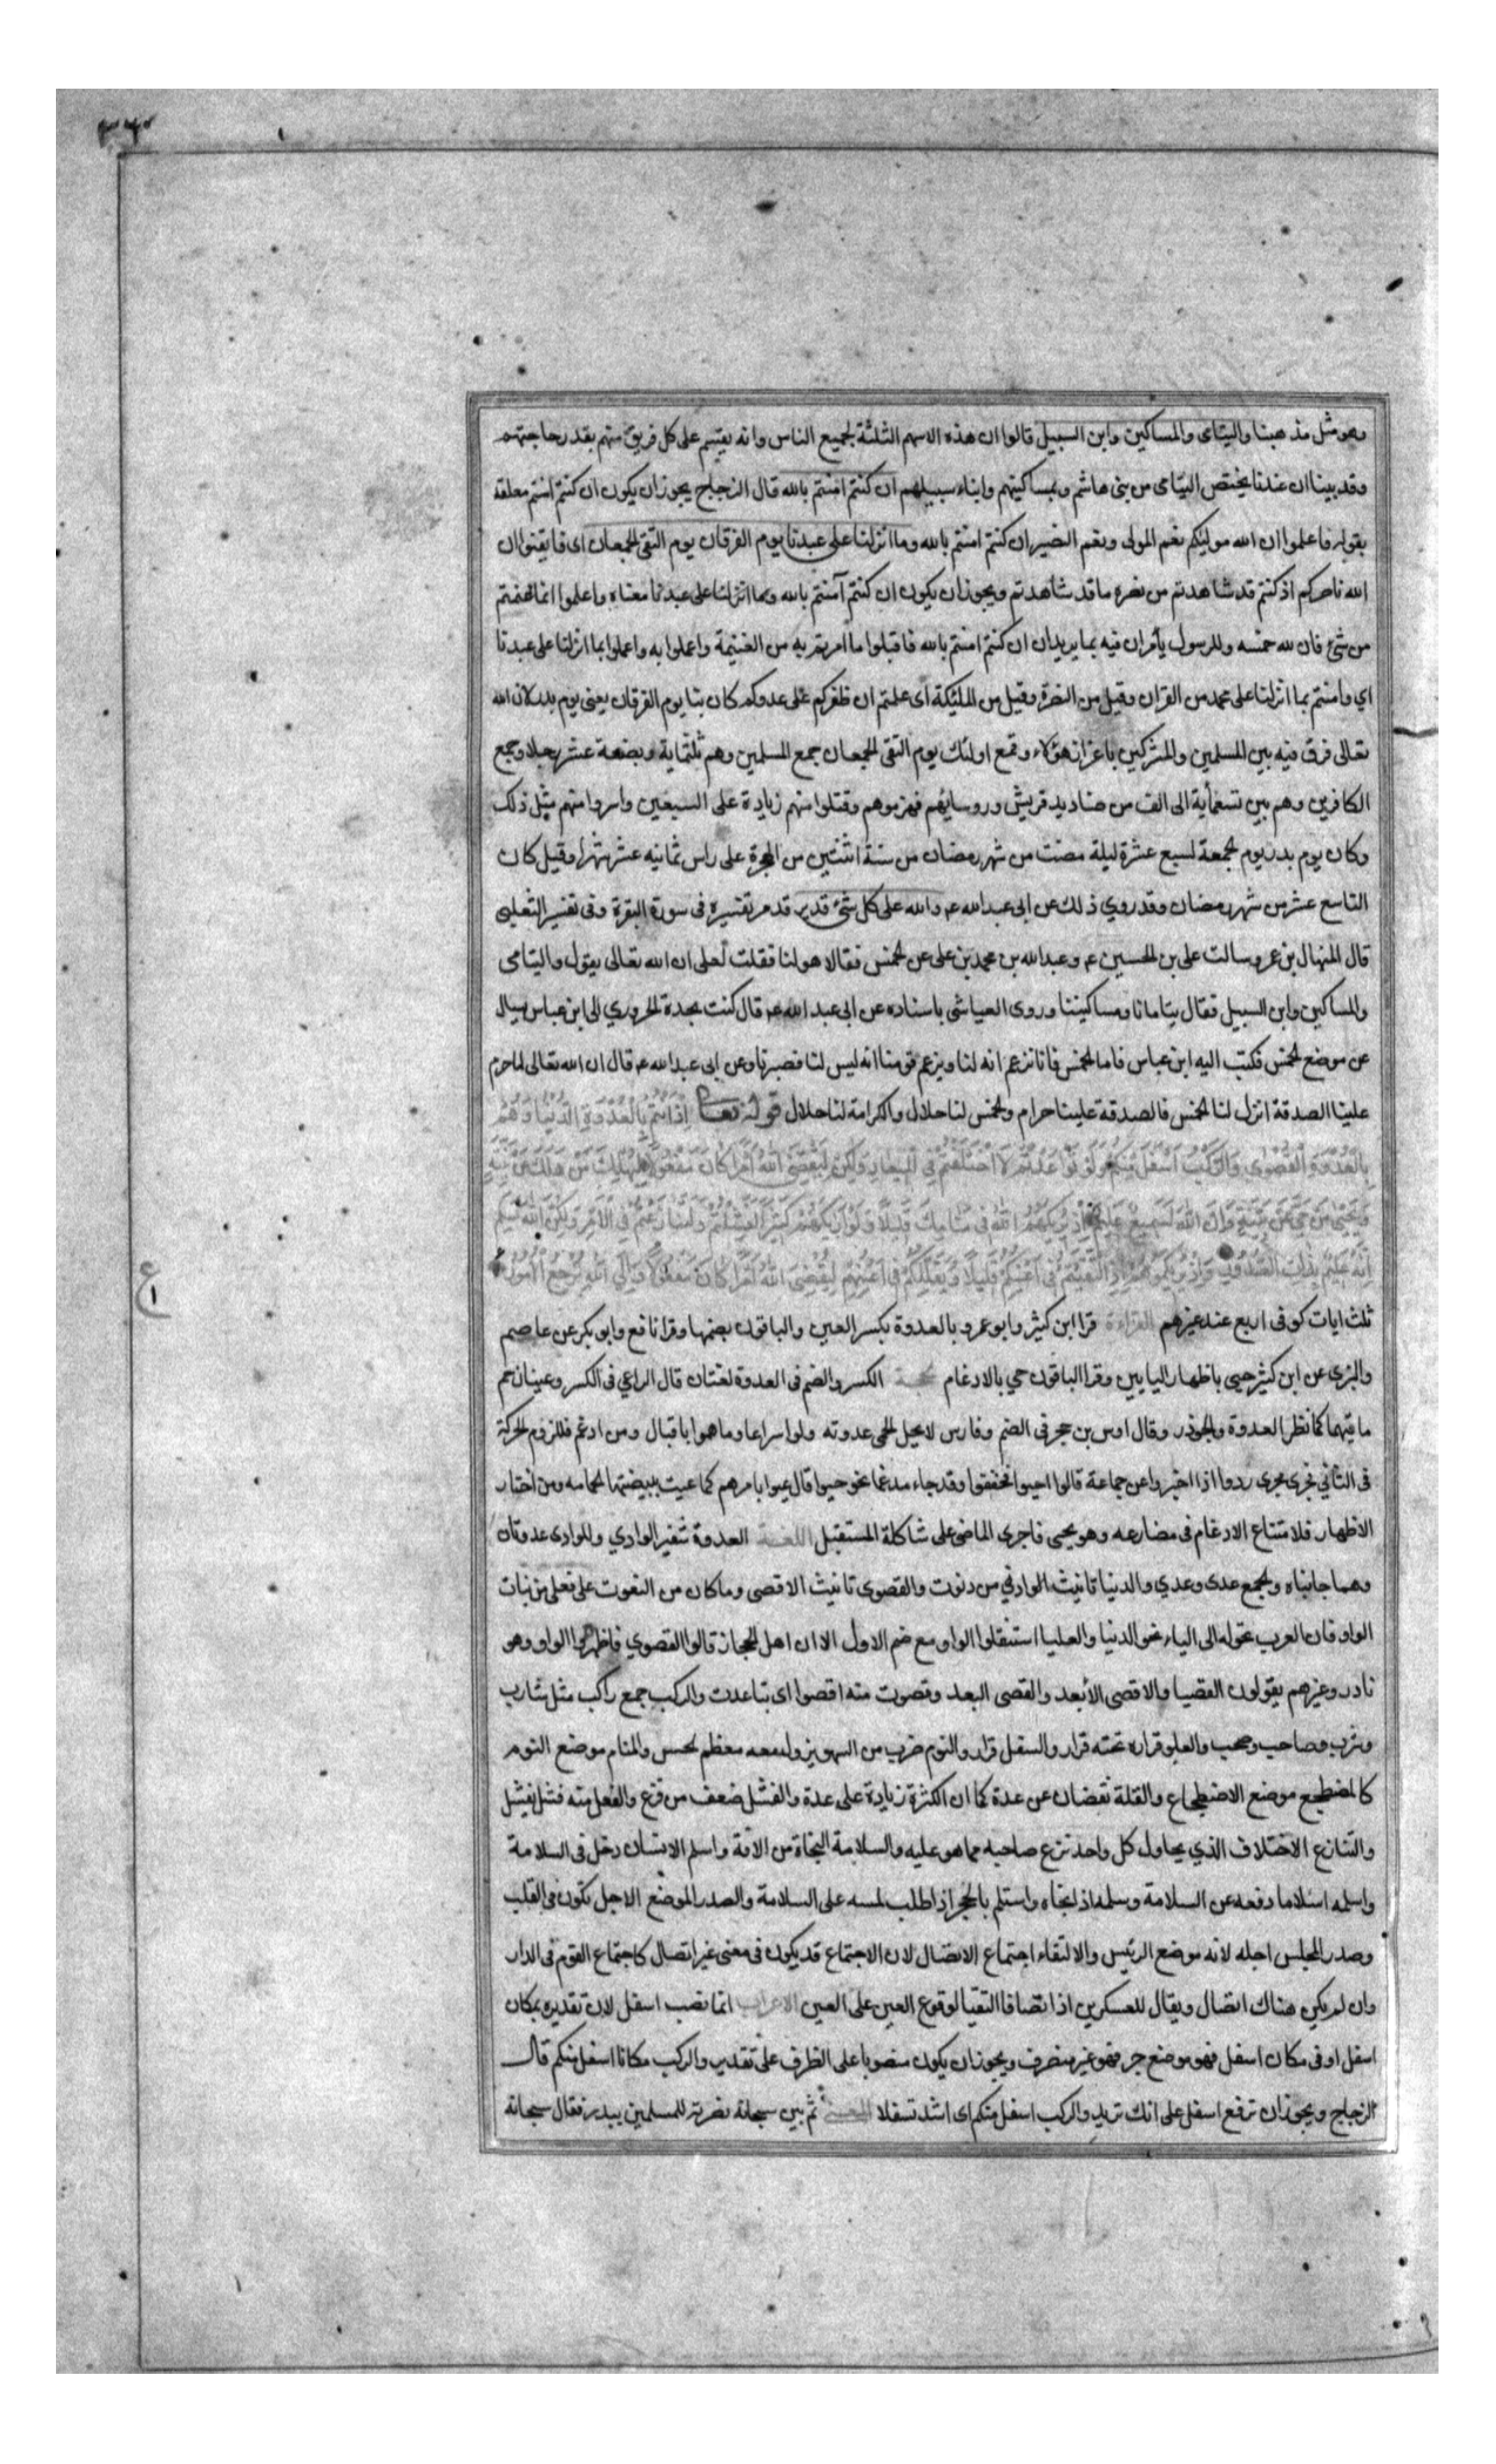 ٣٦٠
وهو مثل مذهبنا واليتامى والمساكين وابن السبيل قالوا ان هذه الاسهم الثلثة لجميع الناس وانه يقسم على كل فريق منهم بقدر حاجتهم
وقد بينا ان عندنا يختص اليتامى من بنى هاشم وبمساكينهم وابناء سبيلهم ان كنتم امنتم بالله قال الزجاج يجوز ان يكون ان كنتم امنتم معلقة
بقوله فاعلموا ان الله موليكم نعم المولى ونعم النصير ان كنتم امنتم بالله وما انزلنا على عبدنا يوم الفرقان يوم التقى الجمعان اى فايقنوا ان
الله ناصركم اذ كنتم قد شاهدتم من نصره ما قد شاهدتم ويجوز ان يكون ان كنتم آمنتم بالله وما انزلنا على عبدنا معناه واعلموا انما غنمتم
من شئ فان لله خمسه وللرسول يأمران فيه بما يريدان ان كنتم امنتم بالله فاقبلوا ما امرتم به من الغنيمة واعملوا به واعملوا بما انزلنا على عبدنا
اي وامنتم بما انزلنا على محمد من القران وقيل من النصرة وقيل من المليكة اى علمتم ان ظفركم على عدوكم كان بنا يوم الفرقان يعنى يوم بدر لان الله
تعالى فرق فيه بين المسلمين والمشركين باعزاز هؤلاء وقمع اولئك يوم التقى الجمعان جمع المسلمين وهم ثلثماية وبضعة عشر رجلا وجمع
الكافرين وهم بين تسعمأية الى الف من صناديد قريش وروسائهم فهزموهم وقتلوا منهم زيادة على السبعين واسروا منهم مثل ذلك
وكان يوم بدر يوم الجمعة لسبع عشرة ليلة مضت من شهر رمضان من سنة اثنتين من الهجرة على راس ثمانيه عشر شهرا وقيل كان
التاسع عشر من شهر رمضان وقد روي ذلك عن ابى عبدالله عم والله على كل شئ قدير قد مر تفسيره فى سورة البقرة وفى تفسير الثعلبى
قال المنهال بن عمرو سالت على بن الحسين عم وعبدالله بن محمد بن على عن الخمس فقالا هو لنا فقلت لعلى ان الله تعالى يقول واليتامى
والمساكين وابن السبيل فقال يتامانا ومساكيننا وروى العياشى باسناده عن ابى عبد الله عم قال كتب نجدة الحروري الى ابن عباس يسال
عن موضع الخمس فكتب اليه ابن عباس فاما الخمس فانا نزعم انه لنا ويزعم قومنا انه ليس لنا فصبرنا وعن ابى عبدالله عم قال ان الله تعالى لما حرم
علينا الصدقة انزل لنا الخمس فالصدقة علينا حرام والخمس لنا حلال والكرامة لنا حلال قوله تعالى إذ انتم بالعدوة الدنيا وهم
بالعدوة القصوى والركب اسفل منكم ولو تواعدتم لاختلفتم في الميعاد ولكن ليقضي الله امرا كان مفعولا ليهلك من هلك عن بينة
ويحيى من حي عن بينة وان الله لسميع عليم اذ يريكهم الله في منامك قليلا ولو اريكهم كثيرا لفشلتم ولتنازعتم في الامر ولكن الله سلم
انه عليم بذات الصدور واذ يريكموهم اذ التقيتم في اعينكم قليلا ويقللكم في اعينهم ليقضي الله امرا كان مفعولا والى الله ترجع الامور
ع
١
ثلث ايات كوفى اربع عند غيرهم القراءة قرا ابن كثير وابو عمرو بالعدوة بكسر العين والباقون بضمها وقرا نافع وابو بكر عن عاصم
والبزى عن ابن كثير حيى باظهار اليايين وقرا الباقون حي بالادغام الحجة الكسر والضم فى العدوة لغتان قال الراعي فى الكسر وعينان حم
ماقيهما كما نظر العدوة والجوذر وقال اوس بن حجر فى الضم وفارس لا يحل الحى عدوته ولوا سراعا وما هموا باقبال ومن ادغم فللزوم الحركة
فى الثاني فجرى مجرى ردوا اذا اخبروا عن جماعة قالوا احيوا فخففوا وقد جاء مدغما نحو حيوا قال عيوا بامرهم كما عيت ببيضتها الحمامه ومن اختار
الاظهار فلامتناع الادغام فى مضارعه وهو يحيى فاجرى الماضى على شاكلة المستقبل اللغة العدوة شفير الوادي وللوادى عدوتان
وهما جانباه والجمع عدى وعدي والدنيا تانيث الادنى من دنوت والقصوى تانيث الاقصى وما كان من النعوت على فعلى من بنات
الواو فان العرب تحوله الى الياء نحو الدنيا والعليا استثقلوا الواو مع ضم الاول الا ان اهل الحجاز قالوا القصوي فاظهروا الواو وهو
نادر وغيرهم يقولون القصيا والاقصى الأبعد والقصى البعد وقصوت منه اقصوا اى تباعدت والركب جمع راكب مثل شارب
وشرب وصاحب وصحب والعلو قراره تحته قرار والسفل قرار والنوم ضرب من السهو يزول معه معظم الحس والمنام موضع النوم
كالمضطجع موضع الاضطجاع والقلة نقصان عن عدة كما ان الكثرة زيادة على عدة والفشل ضعف من فزع والفعل منه فشل يفشل
والتنازع الاختلاف الذي يحاول كل واحد نزع صاحبه مما هو عليه والسلامة النجاة من الافة واسلم الانسان دخل فى السلامة
واسلمه اسلاما دفعه عن السلامة وسلمه اذ نجاه واستلم بالحجر اذا طلب لمسه على السلامة والصدر الموضع الاجل تكون فى القلب
وصدر المجلس اجله لانه موضع الرئيس والالتقاء اجتماع الاتصال لان الاجتماع قد يكون فى معنى غير اتصال كاجتماع القوم فى الدار
وان لم يكن هناك اتصال ويقال للعسكرين اذا تصافا التقيا لوقوع العين على العين الاعراب انما نصب اسفل لان تقديره بمكان
اسفل او فى مكان اسفل فهو موضع جر فهو غير منصرف ويجوز ان يكون منصوبا على الظرف على تقدير والركب مكانا اسفل منكم قال
الزجاج ويجوز ان ترفع اسفل على انك تريد والركب اسفل منكم اى اشد تسفلا المعنى ثم بين سبحانه نصرته للمسلمين ببدر فقال سبحانه